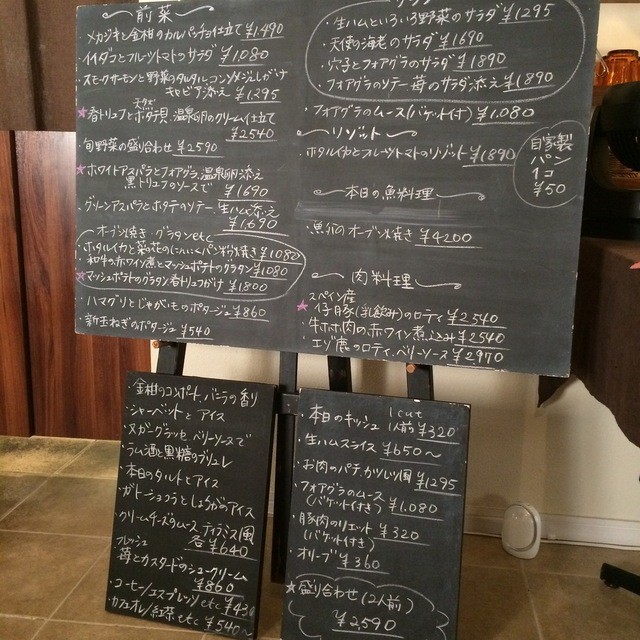 前菜
・メカジキと金柑のカルパッチョ仕立て ¥1,490
・イイダコとフルーツトマトのサラダ ¥1,080
・スモークサーモンと野菜のタルタル コンソメジュレがけ
キャビア添え ¥1295
天然
★春トリュフとホタテ貝、温泉卵のクリーム仕立て
¥2540
・旬野菜の盛り合わせ ¥2590
★ホワイトアスパラとフォアグラ、温泉卵添え
黒トリュフのソースで ¥1690
・グリーンアスパラとホタテのソテー 生ハム添え
¥1,690
オーブン焼き・グラタンetc
・ホタルイカと菜の花のにんにくパン粉焼き ¥1080
・和牛の赤ワイン煮とマッシュポテトのグラタン ¥1080
★マッシュポテトのグラタン春トリュフがけ ¥1800
・ハマグリとじゃがいものポタージュ ¥860
・新玉ねぎのポタージュ ¥540
・生ハムといろいろ野菜のサラダ ¥1295
・天使の海老のサラダ ¥1690
・穴子とフォアグラのサラダ ¥1890
・フォアグラのソテー 苺のサラダ添え ¥1890
・フォアグラのムース(バケット付) ¥1.080
リゾット
・ホタルイカとフルーツトマトのリゾット ¥1890
自家製
パン
1コ
¥50
本日の魚料理
・魚介のオーブン焼き ¥4200
肉料理
スペイン産
★仔豚(乳飲み)のロティ ¥2540
・牛ホホ肉の赤ワイン煮込み ¥2540
・エゾ鹿のロティ、ベリーソース ¥2970
・金柑のコンポート、バニラの香り
・シャーベットとアイス
・ヌガーグラッセ ベリーソースで
・ラム酒と黒糖のブリュレ
・本日のタルトとアイス
・ガトーショコラとしょうがのアイス
・クリームチーズのムース ティラミス風
各¥640
フレッシュ
・苺とカスタードのシュークリーム
¥860
・コーヒー/エスプレッソ etc ¥430
・カフェオレ/紅茶 etc ¥540~
・本日のキッシュ 1cut
1人前 ¥320
・生ハムスライス ¥650~
・お肉のパテ かつしか風 ¥1295
・フォアグラのムース
(バケット付き) ¥1.080
・豚肉のリエット ¥320
(バケット付き)
・オリーブ ¥360
★盛り合わせ(2人前)
¥2,590